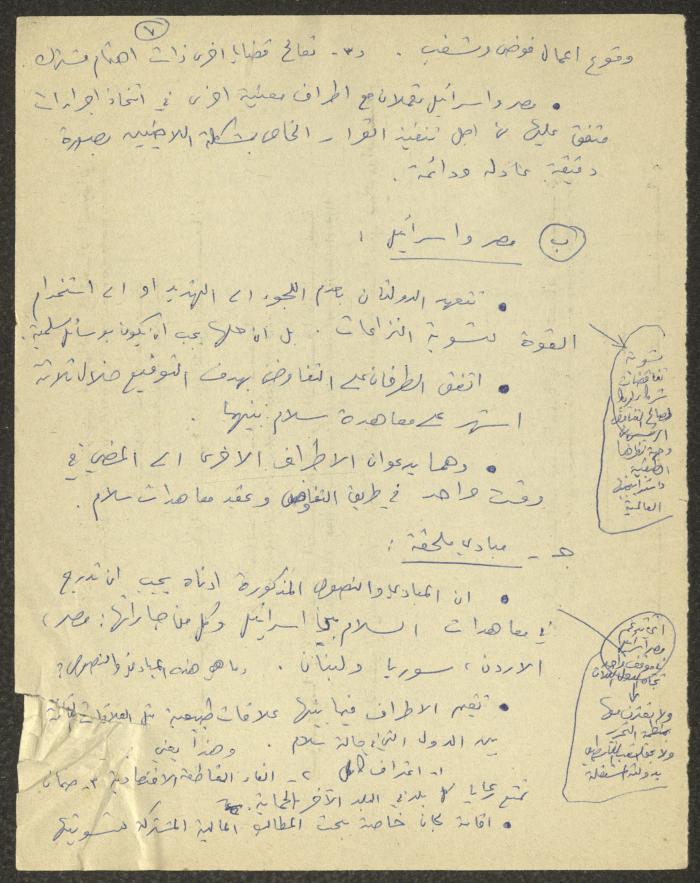 ٧
وقوع اعمال فوضى وشغب . و٣- تعالج قضايا اخرى ذات اهتمام مشترك
• مصر واسرائيل تعملان مع اطراف معنية اخرى في اتخاذ اجراءات
متفق عليها من اجل تنفيذ القرار الخاص بمشكلة اللاجئين بصورة
دقيقة عادلة ودائمة .
ب مصر واسرائيل :
• تتعهد الدولتان بعدم اللجوء الى التهديد او الى استخدام
القوة لتسوية النزاعات . بل ان حلها يجب ان يكون بوسائل سلمية .
• اتفق الطرفان على التفاوض بهدف التوقيع خلال ثلاثة
اشهر على معاهدة سلام بينهما .
• وهما يدعوان الاطراف الاخرى الى المضي في
وقت واحد في طريق التفاوض وعقد معاهدات سلام .
تسوية
تناقضات
وجهة نظرها
العالمية
جـ - مبادئ ملحقة :
• ان المبادئ والنصوص المذكورة ادناه يجب ان تدرج
في معاهدات السلام بين اسرائيل وكل من جاراتها : مصر ،
الاردن ، سوريا ولبنان . وما هي هذه المبادئ والنصوص ؟
• تقيم الاطراف فيما بينها علاقات طبيعية مثل العلاقات القائمة
بين الدول التي في حالة سلام . وهذا يعني :
١- اعتراف كامل ٢- الغاء المقاطعة الاقتصادية ٣- ضمان
تمتع رعايا كل بلد في البلد الآخر بالحماية .
• اقامة لجان خاصة لبحث المطالب المالية المشتركة لتسويتها
مصر
منظمة التحرير
ولا
بدولة مستقلة